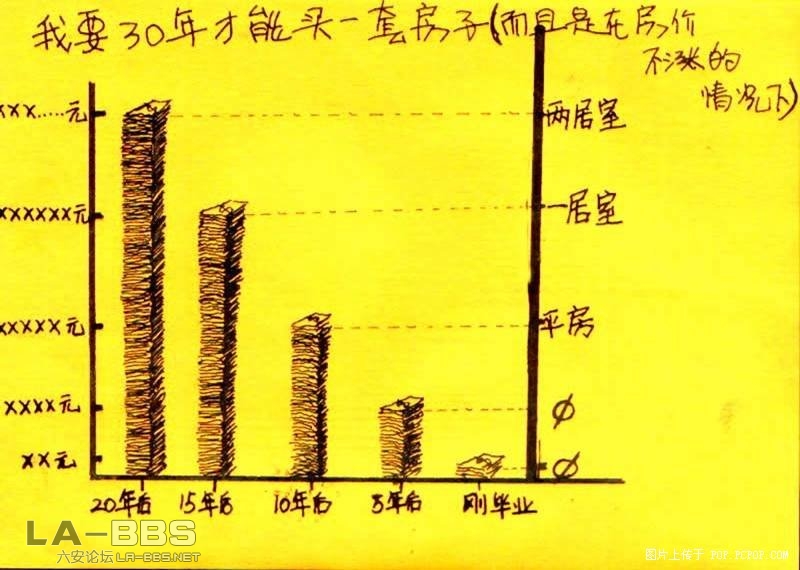 我要30年才能买一套房子(而且是在房价
不涨的
情况下)
xxx.....元
两居室
xxxxxx元
一居室
xxxxx元
平房
xxxx元
ϕ
xx元
ϕ
20年后 15年后 10年后 5年后 刚毕业
LA-BBS
六安论坛 LA-BBS.NET
图片上传于 POP.PCPOP.COM